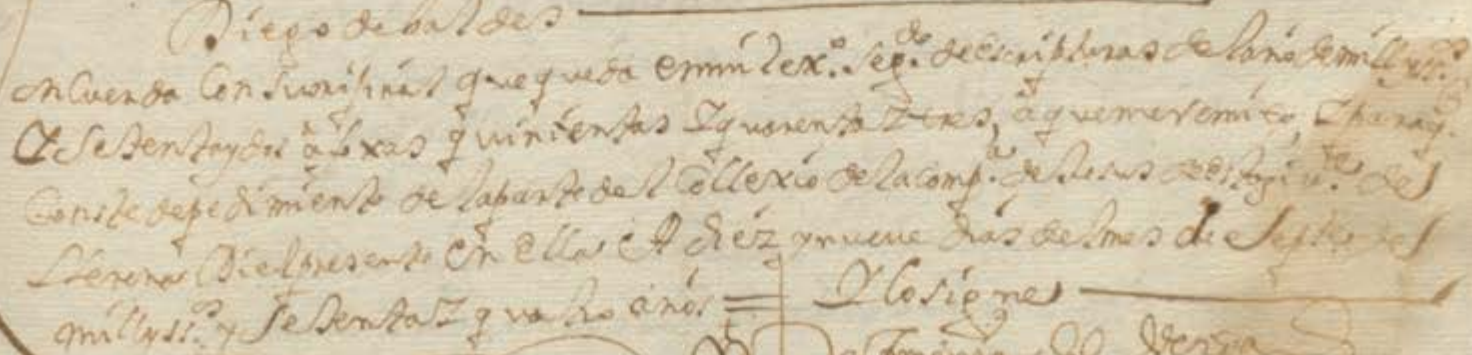 Diego de baldes
Concuerda Con su orijinal que queda en mi rex.º seg.do de escripturas del año de mill y ss.os
Y Setenta y dos a foxas quinientas Y quarenta Z tres, a que me remito, Y para q.
Conste de pedimiento de la parte del Collexio de la comp.ª de Jesus de esta ziu.d de
Llerena Di el presente en ella A diez y nueve dias del mes de Septie de
mill y ss.os y Setenta Z quatro años = Y lo signe